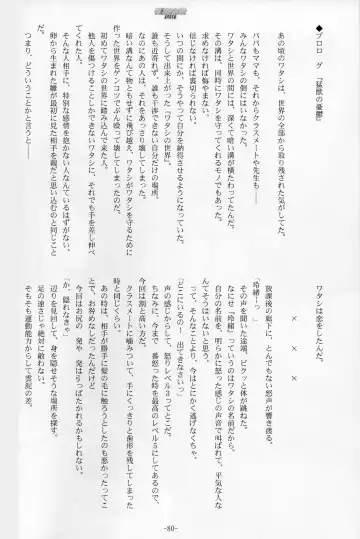 ◆プロローグ 「猛獣の憂鬱」
あの頃のワタシは、世界の全部から取り残された気がしてた。
パパもママも、それからクラスメートや先生も――
みんなワタシの側にはいなかった。
ワタシと世界の間には、深くて暗い溝が横たわってたんだ。
その溝は、同時にワタシを守ってくれるモノでもあった。
求めなければ悔やまない。
信じなければ裏切られない。
いつの間にか、そうやって自分を納得させるようになってて。
そして出来上がった〝ワタシの世界〟。
誰も寄れず、誰も干渉できない自分だけの場所。
なのにあの人は、それをあっさり壊してしまった。
暗い溝なんて物ともせずに飛び越え、ワタシがワタシを守るために
作った世界をゲンコツでぶん殴って壊してしまったのだ。
初めてワタシの世界に踏み込んで来た人。
他人を傷つけることしかできないワタシに、それでも手を差し伸べ
てくれた人。
そんな人相手に、特別な感情を抱かない人なんているはずがない。
卵から生まれた雛が最初に見た相手を親だと思い込むのと同じこと
つまり、どういうことかと言うと――
ワタシは恋をしたんだ。
× × ×
放課後の廊下に、とんでもない怒声が響き渡る。
「玲緒ーっ」
その声を聞いた途端、ビクッと体が跳ねた。
なにせ『玲緒』っていうのはワタシの名前だから。
自分の名前を、明らかに怒った感じの声音で叫ばれて、平気な人な
んてそうはいないと思う。
って、そんなことより、今はとにかく逃げなくちゃ。
「どこにいるの！ 出てきなさいっ」
声の感じからして、怒りレベル３ってとこだ。
ちなみに、今まで一番怒った時を最高のレベル５にしてるので、
今回は割と高い方だ。
クラスメートに噛みついて、手にくっきりと歯形を残してしまった
時と同じくらい。
あれは、相手が勝手に髪の毛に触ろうとしたのも悪かったって
とで、お咎めなしだったんだけど
今回はお尻の一発や二発はひっぱたかれるかもしれない。
「か、隠れなきゃ」
辺りを見回して、身を隠せそうな場所を探す。
足の速さじゃ絶対に敵わない。
そもそも運動能力からして雲泥の差。
-80-